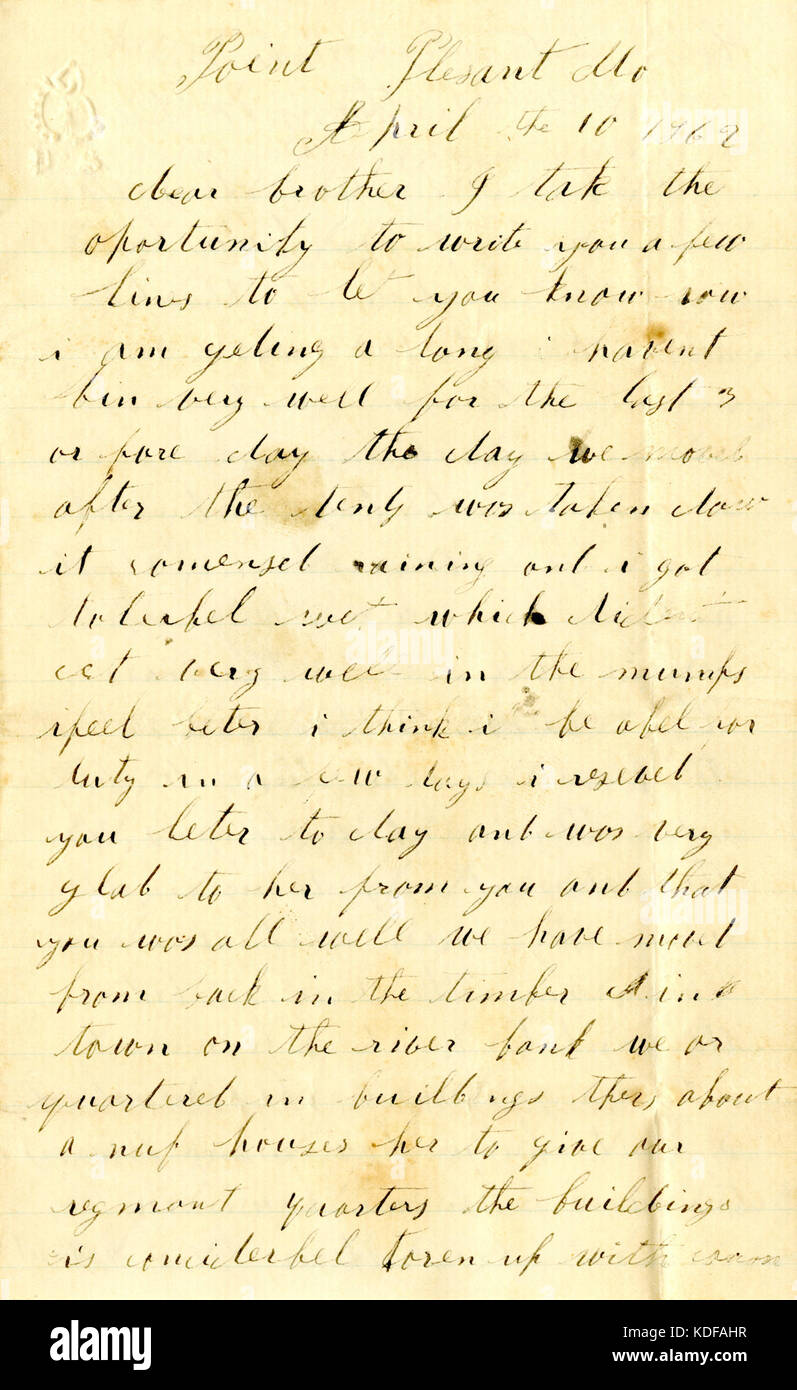 Point Plesant Mo
April the 10 1862
dear brother I tak the
oportunity to write you a few
lines to let you know how
i am geting a long i havent
bin very well for the last 3
or fore day the day we moved
after the tents was taken down
it comensed raining and i got
tolerbel wet which dident
set very well in the mumps
ifeel beter i think i be abel for
duty in a few days i reseved
you leter to day and was very
glad to her from you and that
you was all well we have moved
from back in the timber in a
town on the river bank we ar
quartered in buildings thers about
a nuf houses her to give our
regmont quarters the buildings
is considerbel toren up with canon
alamy stock photo
alamy
Image ID: KDFAHR
www.alamy.com